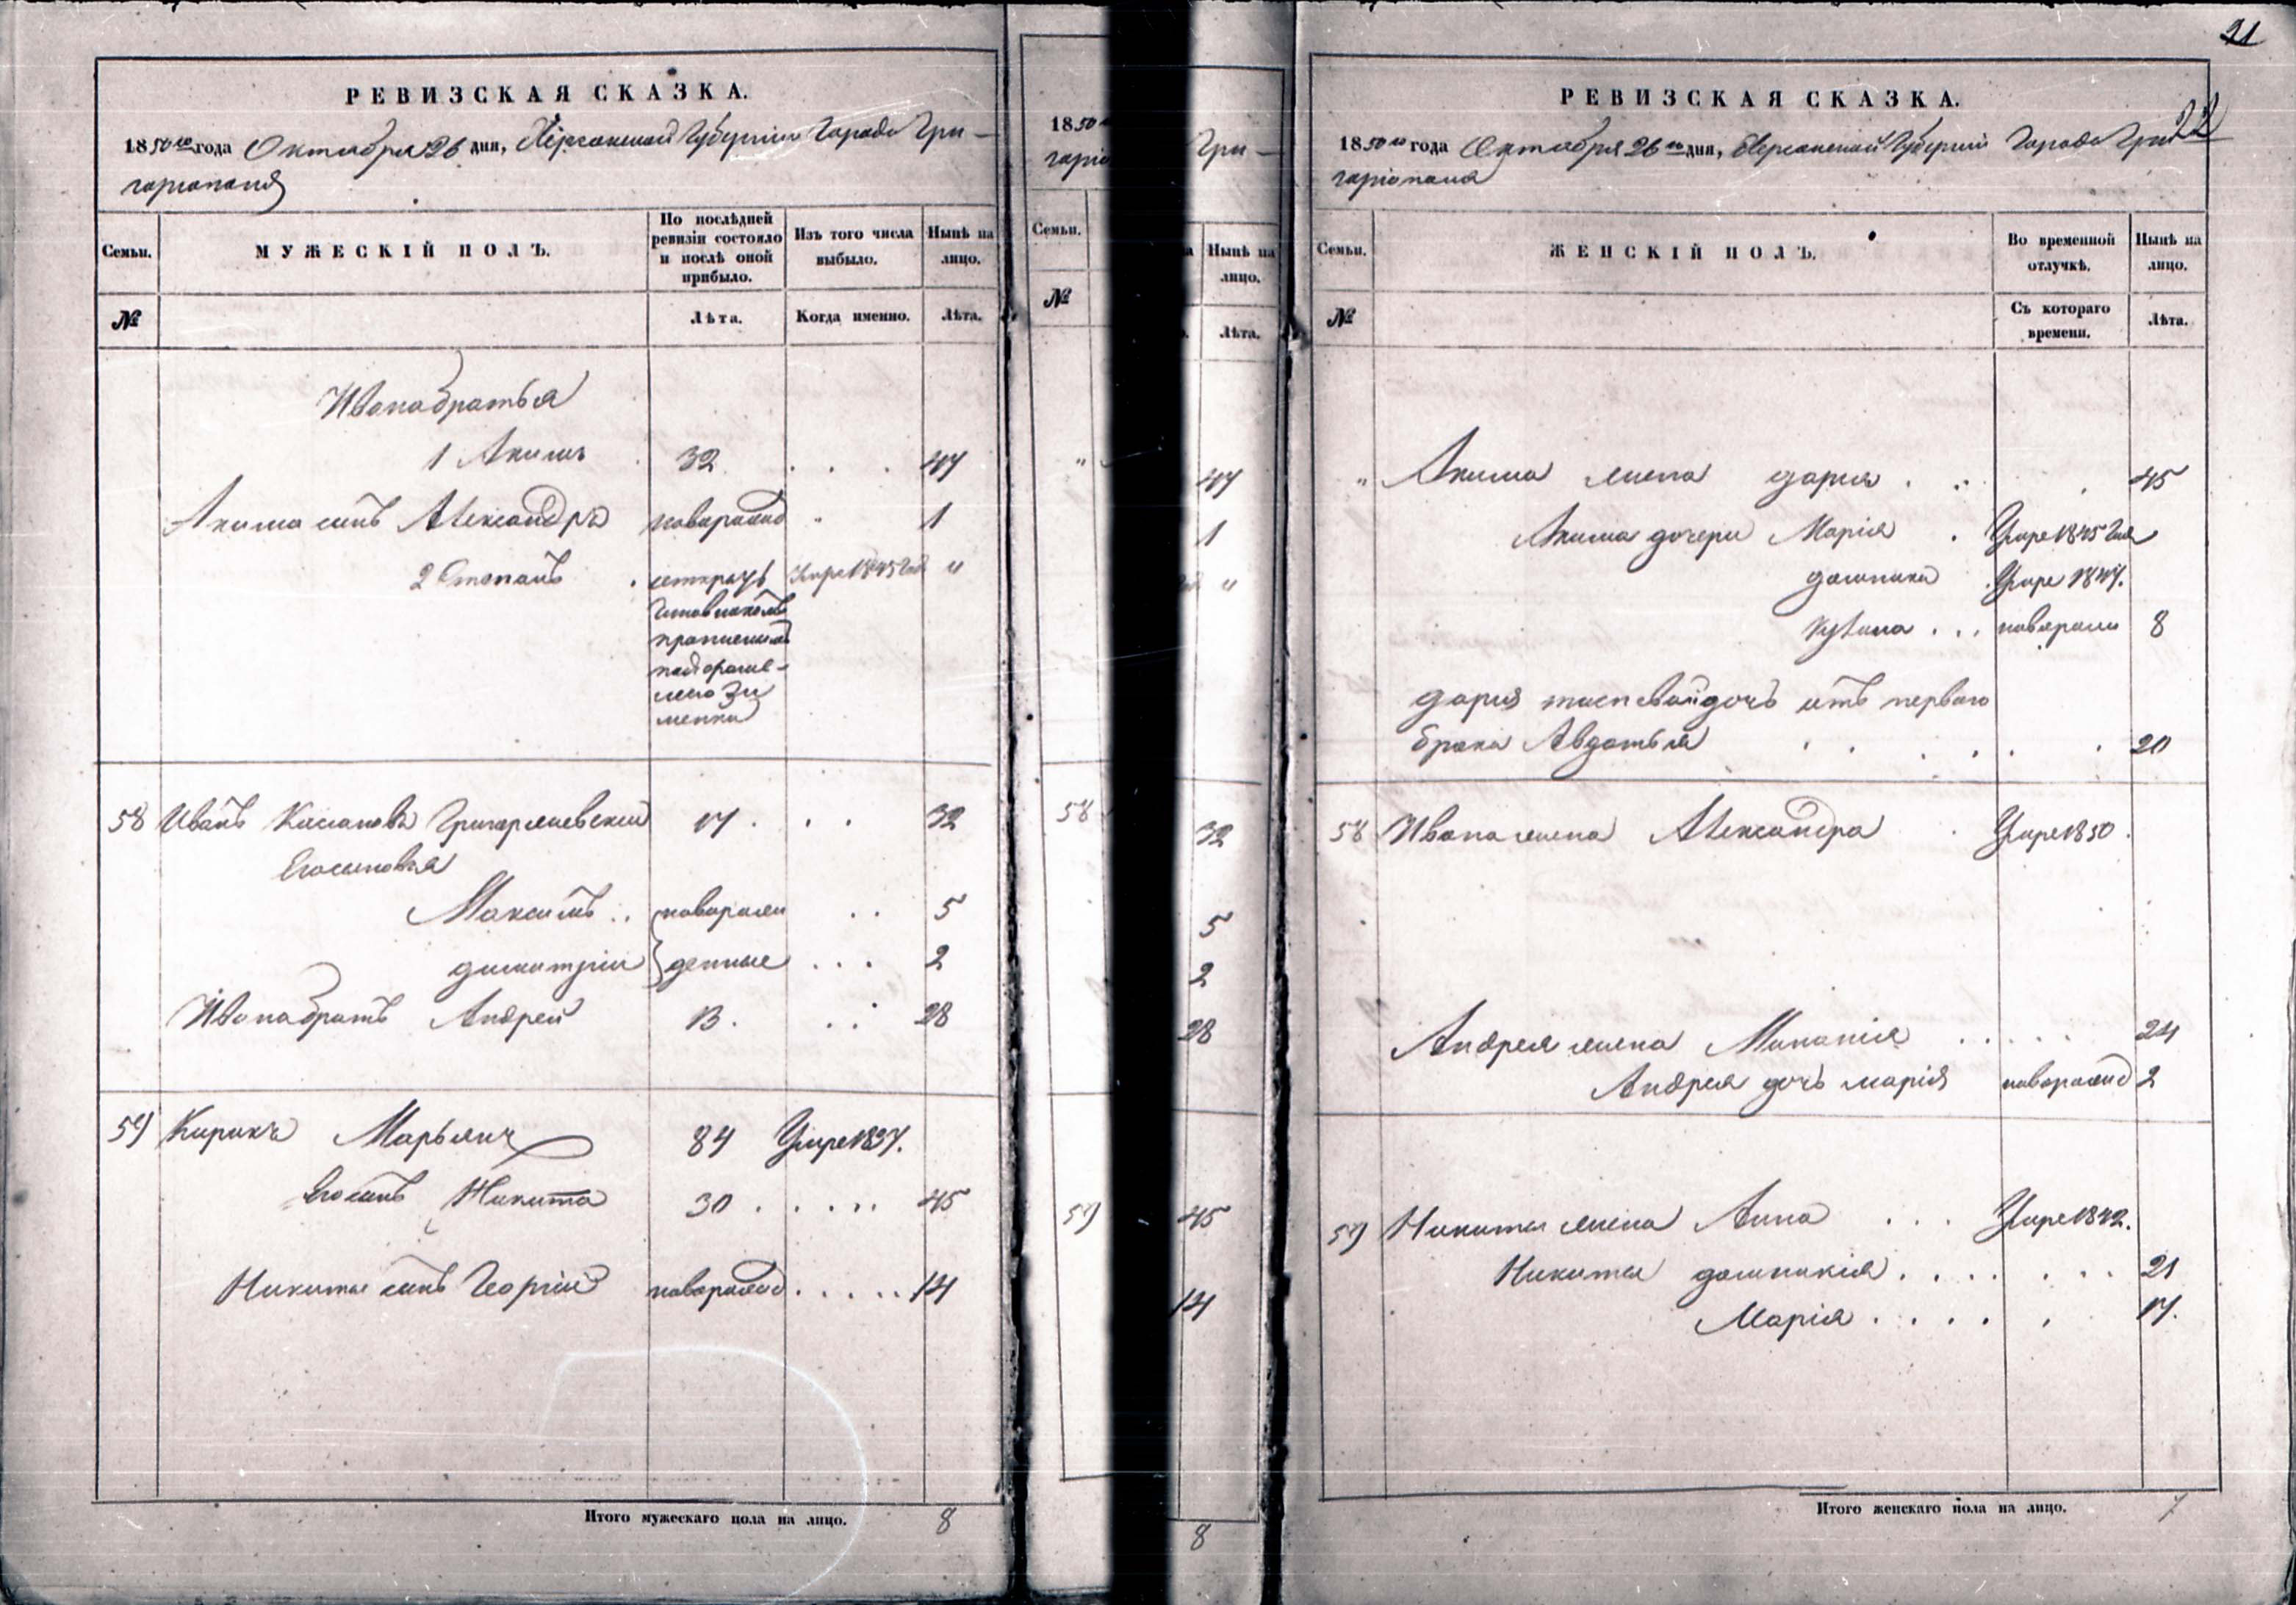 РЕВИЗСКАЯ СКАЗКА.
1850го года Октября 26 дня, Херсонской Губернии Города Гри-
горіополя
Семьи.
МУЖЕСКІЙ ПОЛЪ.
По послѣдней ревизіи состояло и послѣ оной прибыло.
Изъ того числа выбыло.
Нынѣ на лицо.
№
Лѣта.
Когда именно.
Лѣта.
Ивана братья
1 Акимъ 32 47
Акима сынъ Александръ новорожд 1
2 Степанъ умре 1845 год "
58 Иванъ 17 32
Максимъ новорож 5
Димитрій денные 2
Ивана братъ Андрей 13 28
59 Кирикъ Марьянъ 84 Умре 1837.
Его сынъ Никита 30 45
Никиты сынъ Георгій новорожд 14
Итого мужескаго пола на лицо. 8
1850
горіо
Семьи.
№
"
58
59
Гри-
Нынѣ на лицо.
Лѣта.
47
1
"
32
5
2
28
45
14
8
21
22
РЕВИЗСКАЯ СКАЗКА.
1850го года Октября 26го дня, Херсонской Губерніи Города Гри
горіополя
Семьи.
ЖЕНСКІЙ ПОЛЪ.
Во временной отлучкѣ.
Нынѣ на лицо.
№
Съ котораго времени.
Лѣта.
" Акима жена Дарья 45
Акима дочери Марія Умре 1845 года
Домника Умре 1847.
новорож 8
Дарьи дочь отъ перваго
брака Авдотья 20
58 Ивана жена Александра Умре 1850.
Андрея жена Миланія 24
Андрея дочь Марія новорожд 2
59 Никиты жена Анна Умре 1842.
Никиты Домникія 21
Марія 17.
Итого женскаго пола на лицо. 7